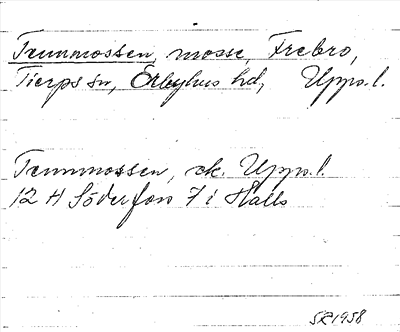 Trunmossen, mosse, Frebro,
Tierps sn, Örbyhus hd, Upps. l.
Trunmossen, ek. Upps. l.
12 H Söderfors 7 i Halls
SR 1958